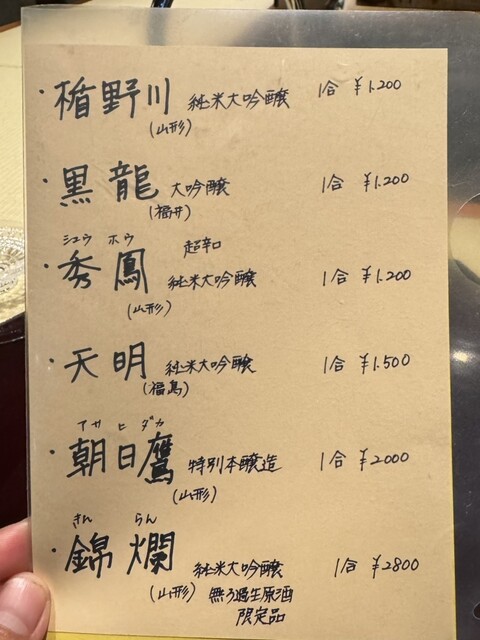 ・楯野川 純米大吟醸 1合 ¥1.200
(山形)
・黒龍 大吟醸 1合 ¥1.200
(福井)
シュウ ホウ 超辛口
・秀鳳 純米大吟醸 1合 ¥1.200
(山形)
・天明 純米大吟醸 1合 ¥1.500
(福島)
アサ ヒ ダカ
・朝日鷹 特別本醸造 1合 ¥2000
(山形)
きん らん
・錦爛 純米大吟醸 1合 ¥2800
(山形) 無ろ過生原酒
限定品